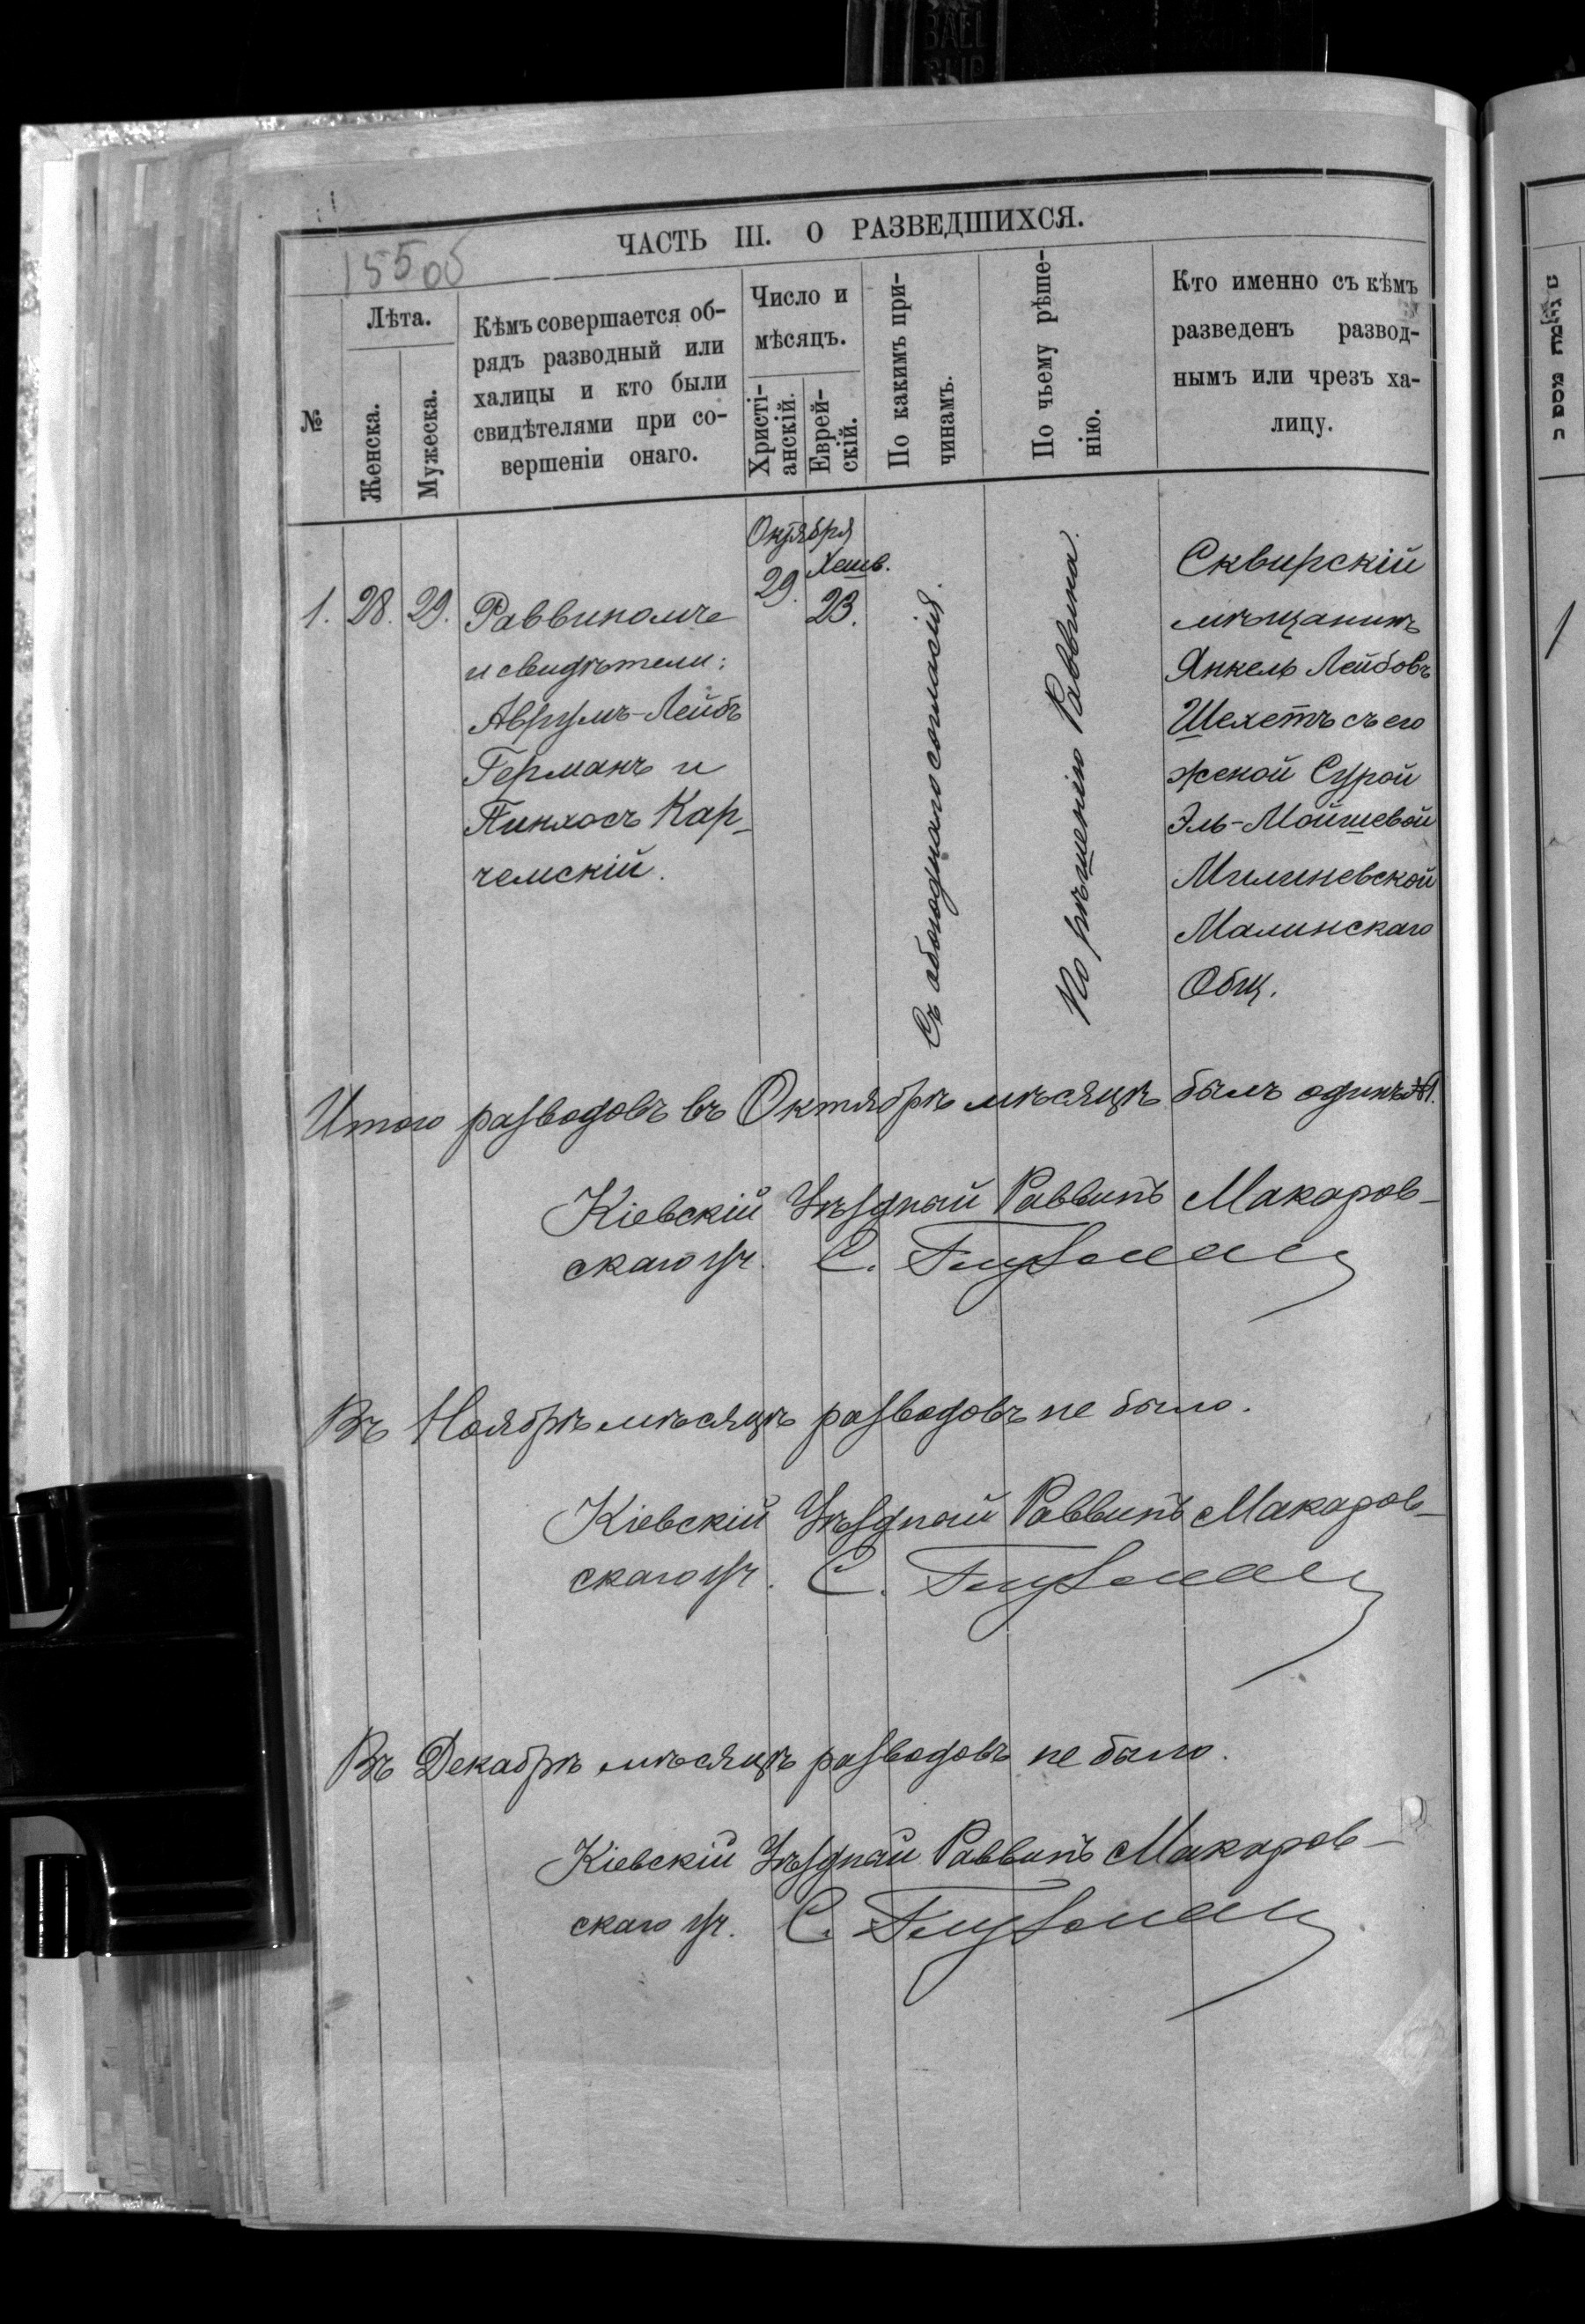 155об
ЧАСТЬ III. О РАЗВЕДШИХСЯ.
№
Лѣта.
Женска.
Мужеска.
Кѣмъ совершается об-
рядъ разводный или
халицы и кто были
свидѣтелями при со-
вершеніи онаго.
Число и
мѣсяцъ.
Христі-
анскій.
Еврей-
скій.
По какимъ при-
чинамъ.
По чьему рѣше-
нію.
Кто именно съ кѣмъ
разведенъ развод-
нымъ или чрезъ ха-
лицу.
1.
28.
29.
Раввиномъ
и свидѣтели:
Аврумъ-Лейбъ
Германъ и
Пинхосъ Кар-
чемскій.
Октября
29.
Хешв.
23.
Съ обоюднаго согласія.
По рѣшенію Раввина.
Сквирскій
мѣщанинъ
Янкель Лейбовъ
Шехетъ съ его
женой Сурой
Эль-Мойшевой
Милиневской
Малинскаго
Общ.
Итого разводовъ въ Октябрѣ мѣсяцѣ былъ одинъ №1.
Кіевскій Уѣздный Раввинъ Макаров-
скаго уч. С.
Въ Ноябрѣ мѣсяцѣ разводовъ не было.
Кіевскій Уѣздный Раввинъ Макаров-
скаго уч. С.
Въ Декабрѣ мѣсяцѣ разводовъ не было.
Кіевскій Уѣздный Раввинъ Макаров-
скаго уч. С.